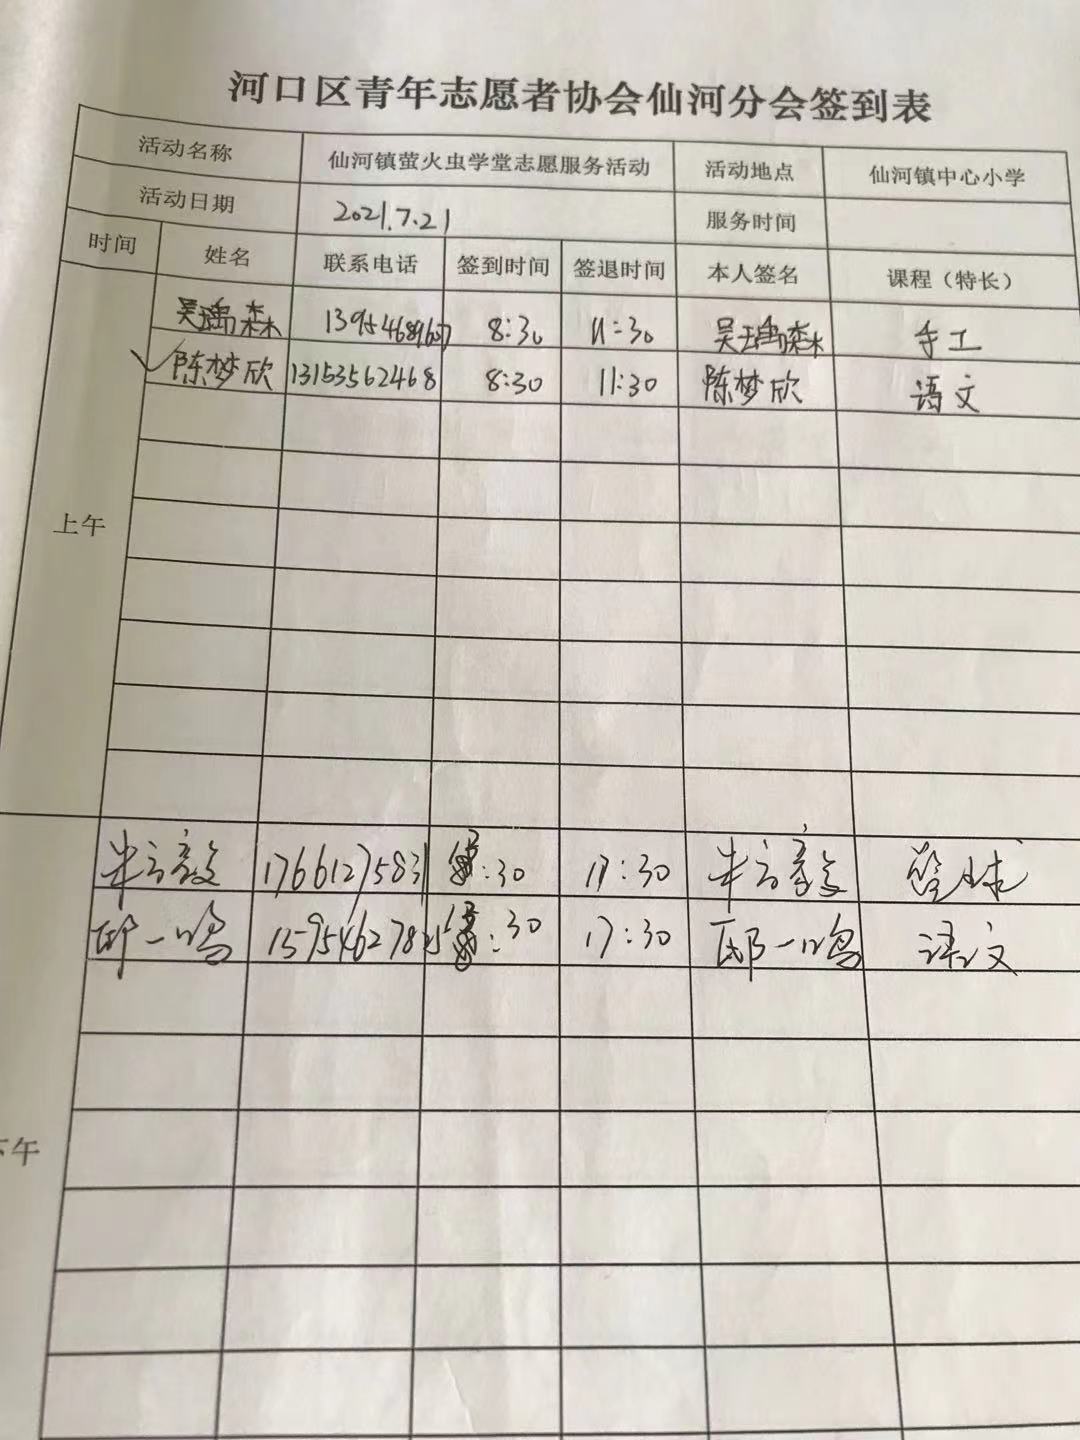 河口区青年志愿者协会仙河分会签到表
活动名称 仙河镇萤火虫学堂志愿服务活动 活动地点 仙河镇中心小学
活动日期 2021.7.21 服务时间
时间 姓名 联系电话 签到时间 签退时间 本人签名 课程（特长）
上午
吴瑀森 8:30 11:30 吴瑀森 手工
陈梦欣 13153562468 8:30 11:30 陈梦欣 语文
下午
17661275831 :30 17:30 篮球
邸一鸣 :30 17:30 邸一鸣 语文